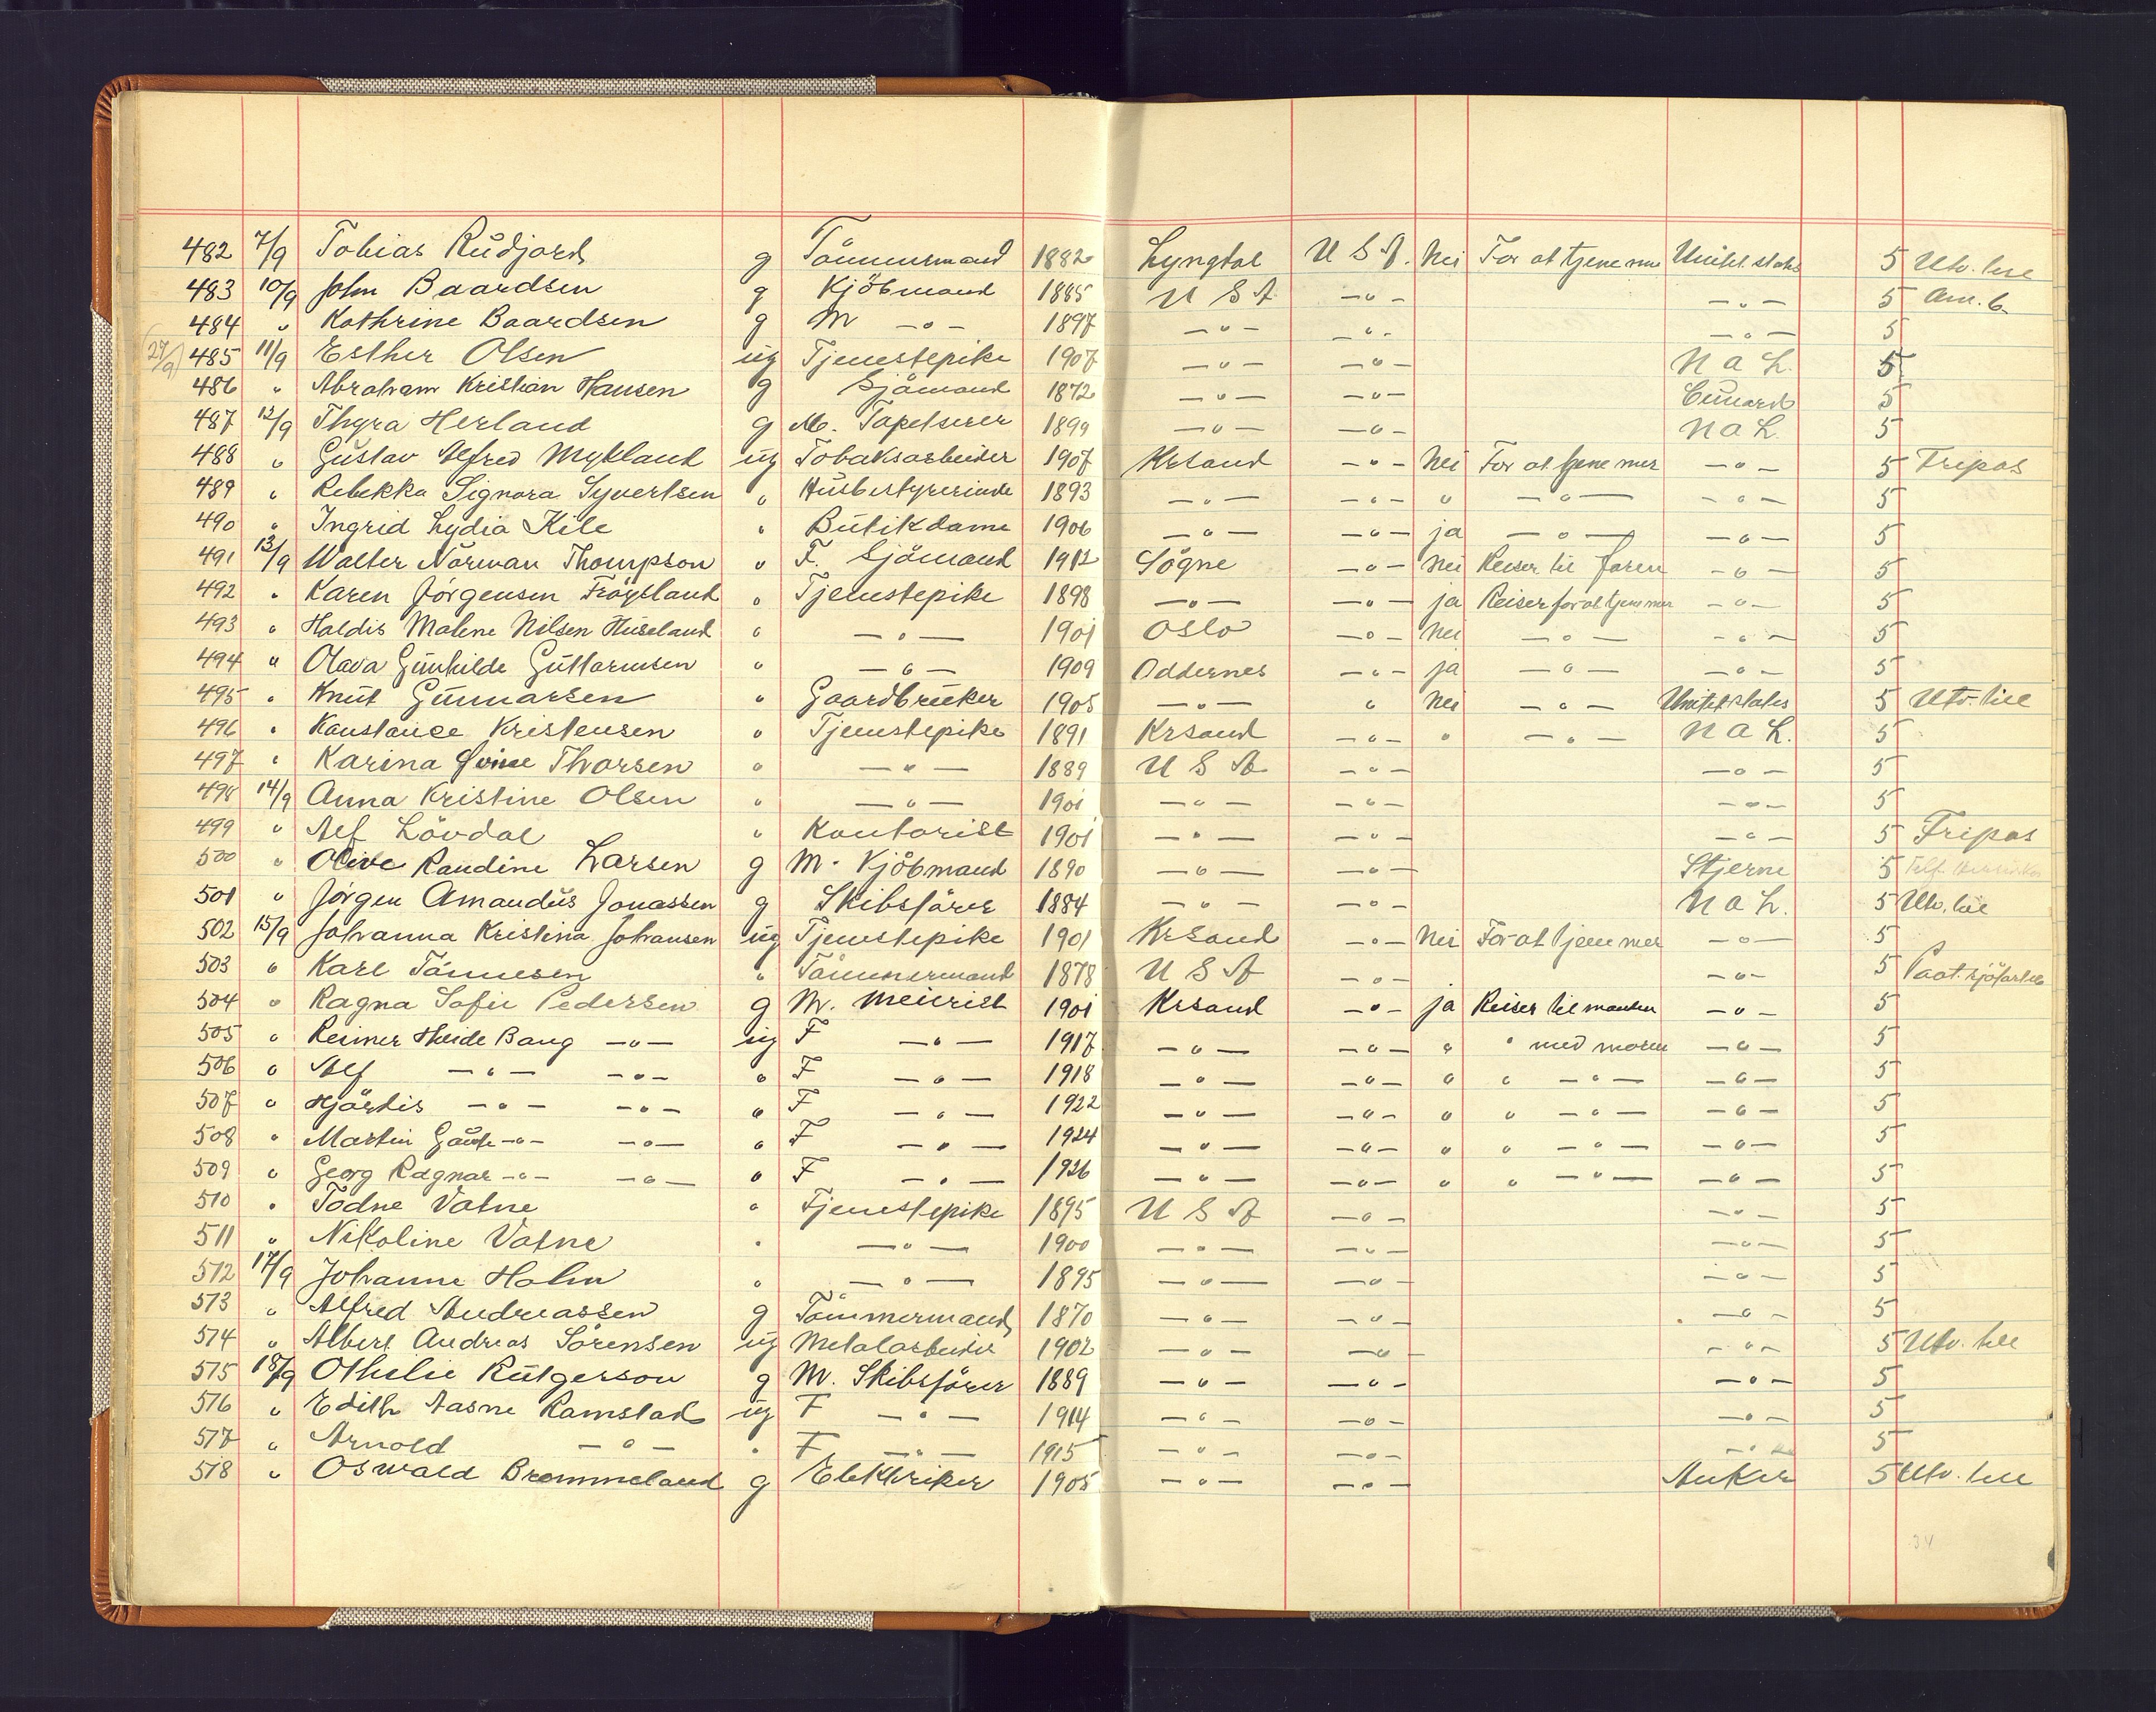 482 7/9 Tobias Rudjord g Tömmermand 1882 Lyngdal U S A. Nei For at tjene mer United states 5 Utv. till
483 10/9 John Baardsen g Kjöbmand 1885 U S A -"- -"- 5 Am. b.
484 " Kathrine Baardsen g M -"- 1897 -"- -"- -"- 5
(24/9) 485 11/9 Esther Olsen ug Tjenestepike 1907 -"- -"- N a L. 5
486 " Abraham Kristian Hansen g Sjömand 1872 -"- -"- Cunard 5
487 12/9 Thyra Herland g M. Tapetserer 1899 -"- -"- N a L. 5
488 " Gustav Alfred Mykland ug Tobaksarbeider 1907 Krsand -"- Nei For at tjene mer -"- 5 Fripas
489 " Rebekka Signora Syvertsen " Husbestyrerinde 1893 -"- -"- " -"- -"- 5
490 " Ingrid Lydia Kile " Butikdame 1906 -"- -"- ja -"- -"- 5
491 13/9 Walter Norman Thompson " F. Sjömand 1912 Sögne -"- Nei Reiser til faren -"- 5
492 " Karen Jörgensen Fröysland " Tjenestepike 1898 -"- -"- ja Reiser for at tjene mer -"- 5
493 " Haldis Malene Nilsen Huseland " -"- 1901 Oslo -"- Nei -"- -"- 5
494 " Olava Gunhilde Guttormsen " -"- 1909 Oddernes -"- ja -"- -"- 5
495 " Knut Gunnarsen " Gaardbruker 1905 -"- " Nei -"- United states 5 Utv. till
496 " Konstance Kristensen " Tjenestepike 1891 Krsand -"- " -"- N a L. 5
497 " Karina Thorsen " -"- 1889 U S A -"- -"- 5
498 14/9 Anna Kristine Olsen " -"- 1901 -"- -"- -"- 5
499 " Alf Lövdal " Kontorist 1901 -"- -"- -"- 5 Fripas
500 " Olive Randine Larsen g M. Kjöbmand 1890 -"- -"- Stjerne 5
501 " Jörgen Amandus Jonassen g Skibsförer 1884 -"- -"- N a L. 5 Utv. till
502 15/9 Johanna Kristina Johansen ug Tjenestepike 1901 Krsand -"- Nei For at tjene mer -"- 5
503 " Karl Tönnesen " Tömmermand 1878 U S A -"- -"- 5 Paat. sjöfartsb
504 " Ragna Sofie Pedersen g M. Meierist 1901 Krsand -"- ja Reiser til manden -"- 5
505 " Reimer Heide Bang -"- ug F -"- 1917 -"- -"- " " med moren -"- 5
506 " Alf -"- -"- " F -"- 1918 -"- -"- " " -"- -"- 5
507 " Hjördis -"- -"- " F -"- 1922 -"- -"- " " -"- -"- 5
508 " Martin Gaute -"- -"- " F -"- 1924 -"- -"- " " -"- -"- 5
509 " Georg Ragnar -"- -"- " F -"- 1926 -"- -"- " " -"- -"- 5
510 " Todne Vatne " Tjenestepike 1895 U S A -"- -"- 5
511 " Nikoline Vatne " -"- 1900 -"- -"- -"- 5
512 17/9 Johanne Holm " -"- 1895 -"- -"- -"- 5
513 " Alfred Andreassen g Tömmermand 1870 -"- -"- -"- 5
514 " Albert Andreas Sörensen ug Metalarbeider 1902 -"- -"- -"- 5 Utv. till
515 18/9 Othelie Rutgerson g M. Skibsförer 1889 -"- -"- -"- 5
516 " Edith Aasne Ramstad ug F -"- 1914 -"- -"- -"- 5
517 " Arnold -"- " F -"- 1915 -"- -"- -"- 5
518 " Oswald Brommeland g Elektriker 1905 -"- -"- Anker 5 Utv. till